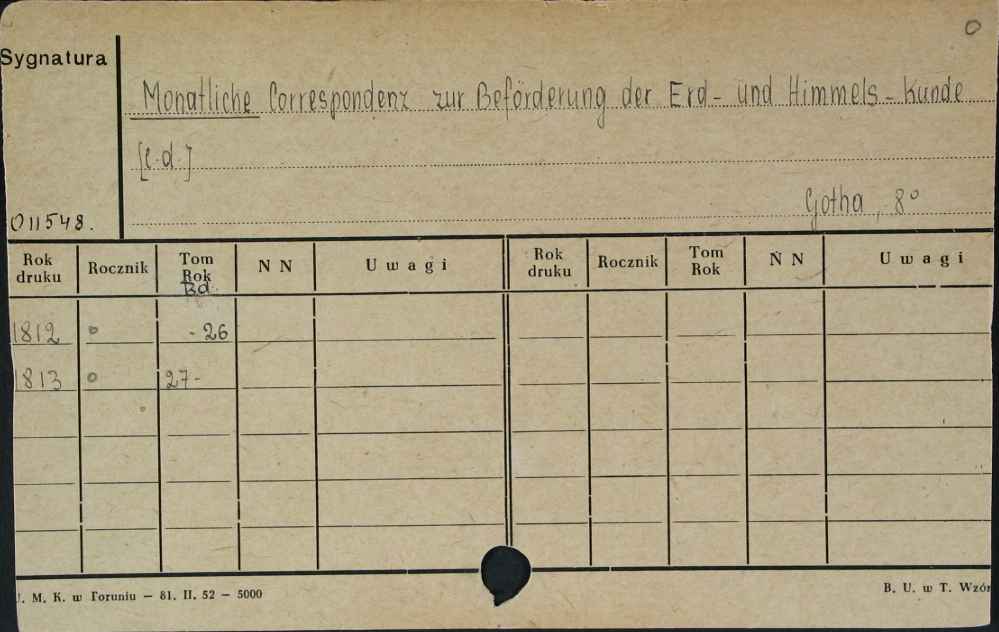 0
Sygnatura
Monatliche Correspondenz zur Beförderung der Erd- und Himmels-Kunde
[c.d.]
Gotha, 8°
011548.
Rok druku Rocznik Tom Rok Bd. N N Uwagi Rok druku Rocznik Tom Rok N N Uwagi
1812 0 - 26
1813 0 27-
. M. K. w Toruniu — 81. II. 52 — 5000
B. U. w T. Wzór